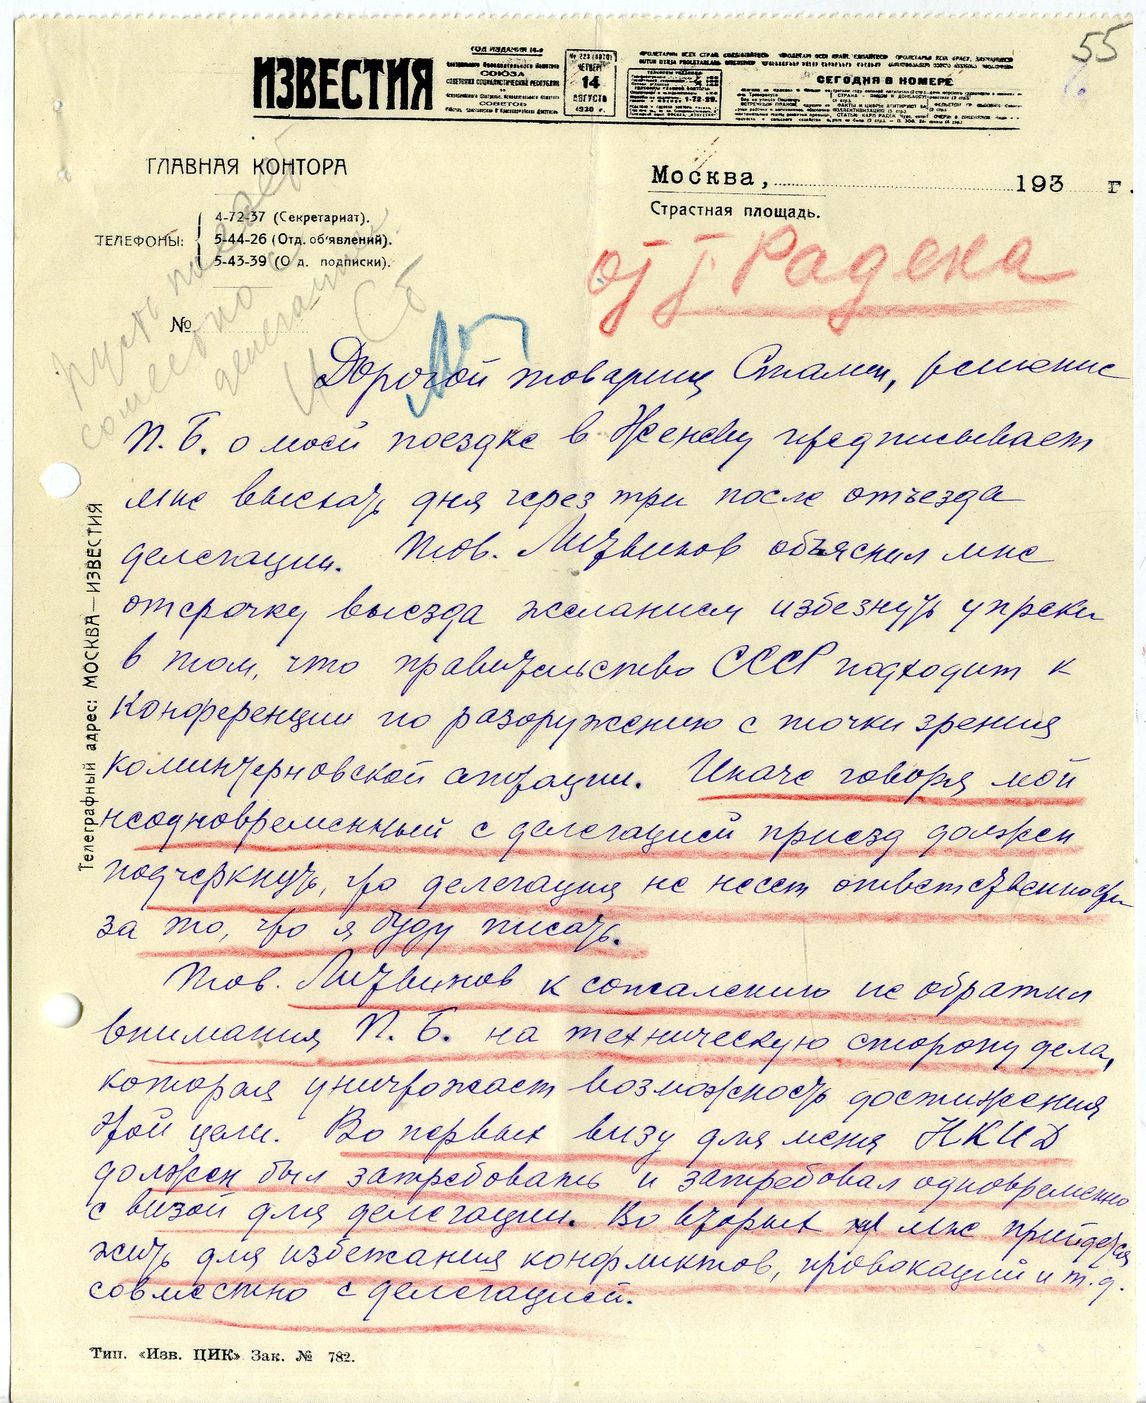 55
ИЗВЕСТИЯ
ГОД ИЗДАНИЯ
СОЮЗА
СОВЕТСКИХ СОЦИАЛИСТИЧЕСКИХ РЕСПУБЛИК
СОВЕТОВ
№ 223
ЧЕТВЕРГ
14
АВГУСТА
1930 г.
СЕГОДНЯ В НОМЕРЕ
ГЛАВНАЯ КОНТОРА
ТЕЛЕФОНЫ:
4-72-37 (Секретариат).
5-44-26 (Отд. об'явлений).
5-43-39 (О д. подписки).
№
Москва, 193 г.
Страстная площадь.
от т Радека
Пусть поедет
совместно с
делегацией.
И Ст
Дорогой товарищ Сталин, решение
П.Б. о моей поездке в Женеву предписывает
мне выехать дня через три после отъезда
делегации. Тов. Литвинов объяснил мне
отсрочку выезда желанием избегнуть упреки
в том, что правительство СССР подходит к
Конференции по разоружению с точки зрения
коминтерновской агитации. Иначе говоря мой
неодновременный с делегацией приезд должен
подчеркнуть, что делегация не несет ответственности
за то, что я буду писать.
Тов. Литвинов к сожалению не обратил
внимания П.Б. на техническую сторону дела,
которая уничтожает возможность достижения
этой цели. Во первых визу для меня НКИД
должен был затребовать и затребовал одновременно
с визой для делегации. Во вторых мне прийдется
жить для избежания конфликтов, провокаций и т.д.
совместно с делегацией.
Телеграфный адрес: МОСКВА—ИЗВЕСТИЯ
Тип. «Изв. ЦИК» Зак. № 782.